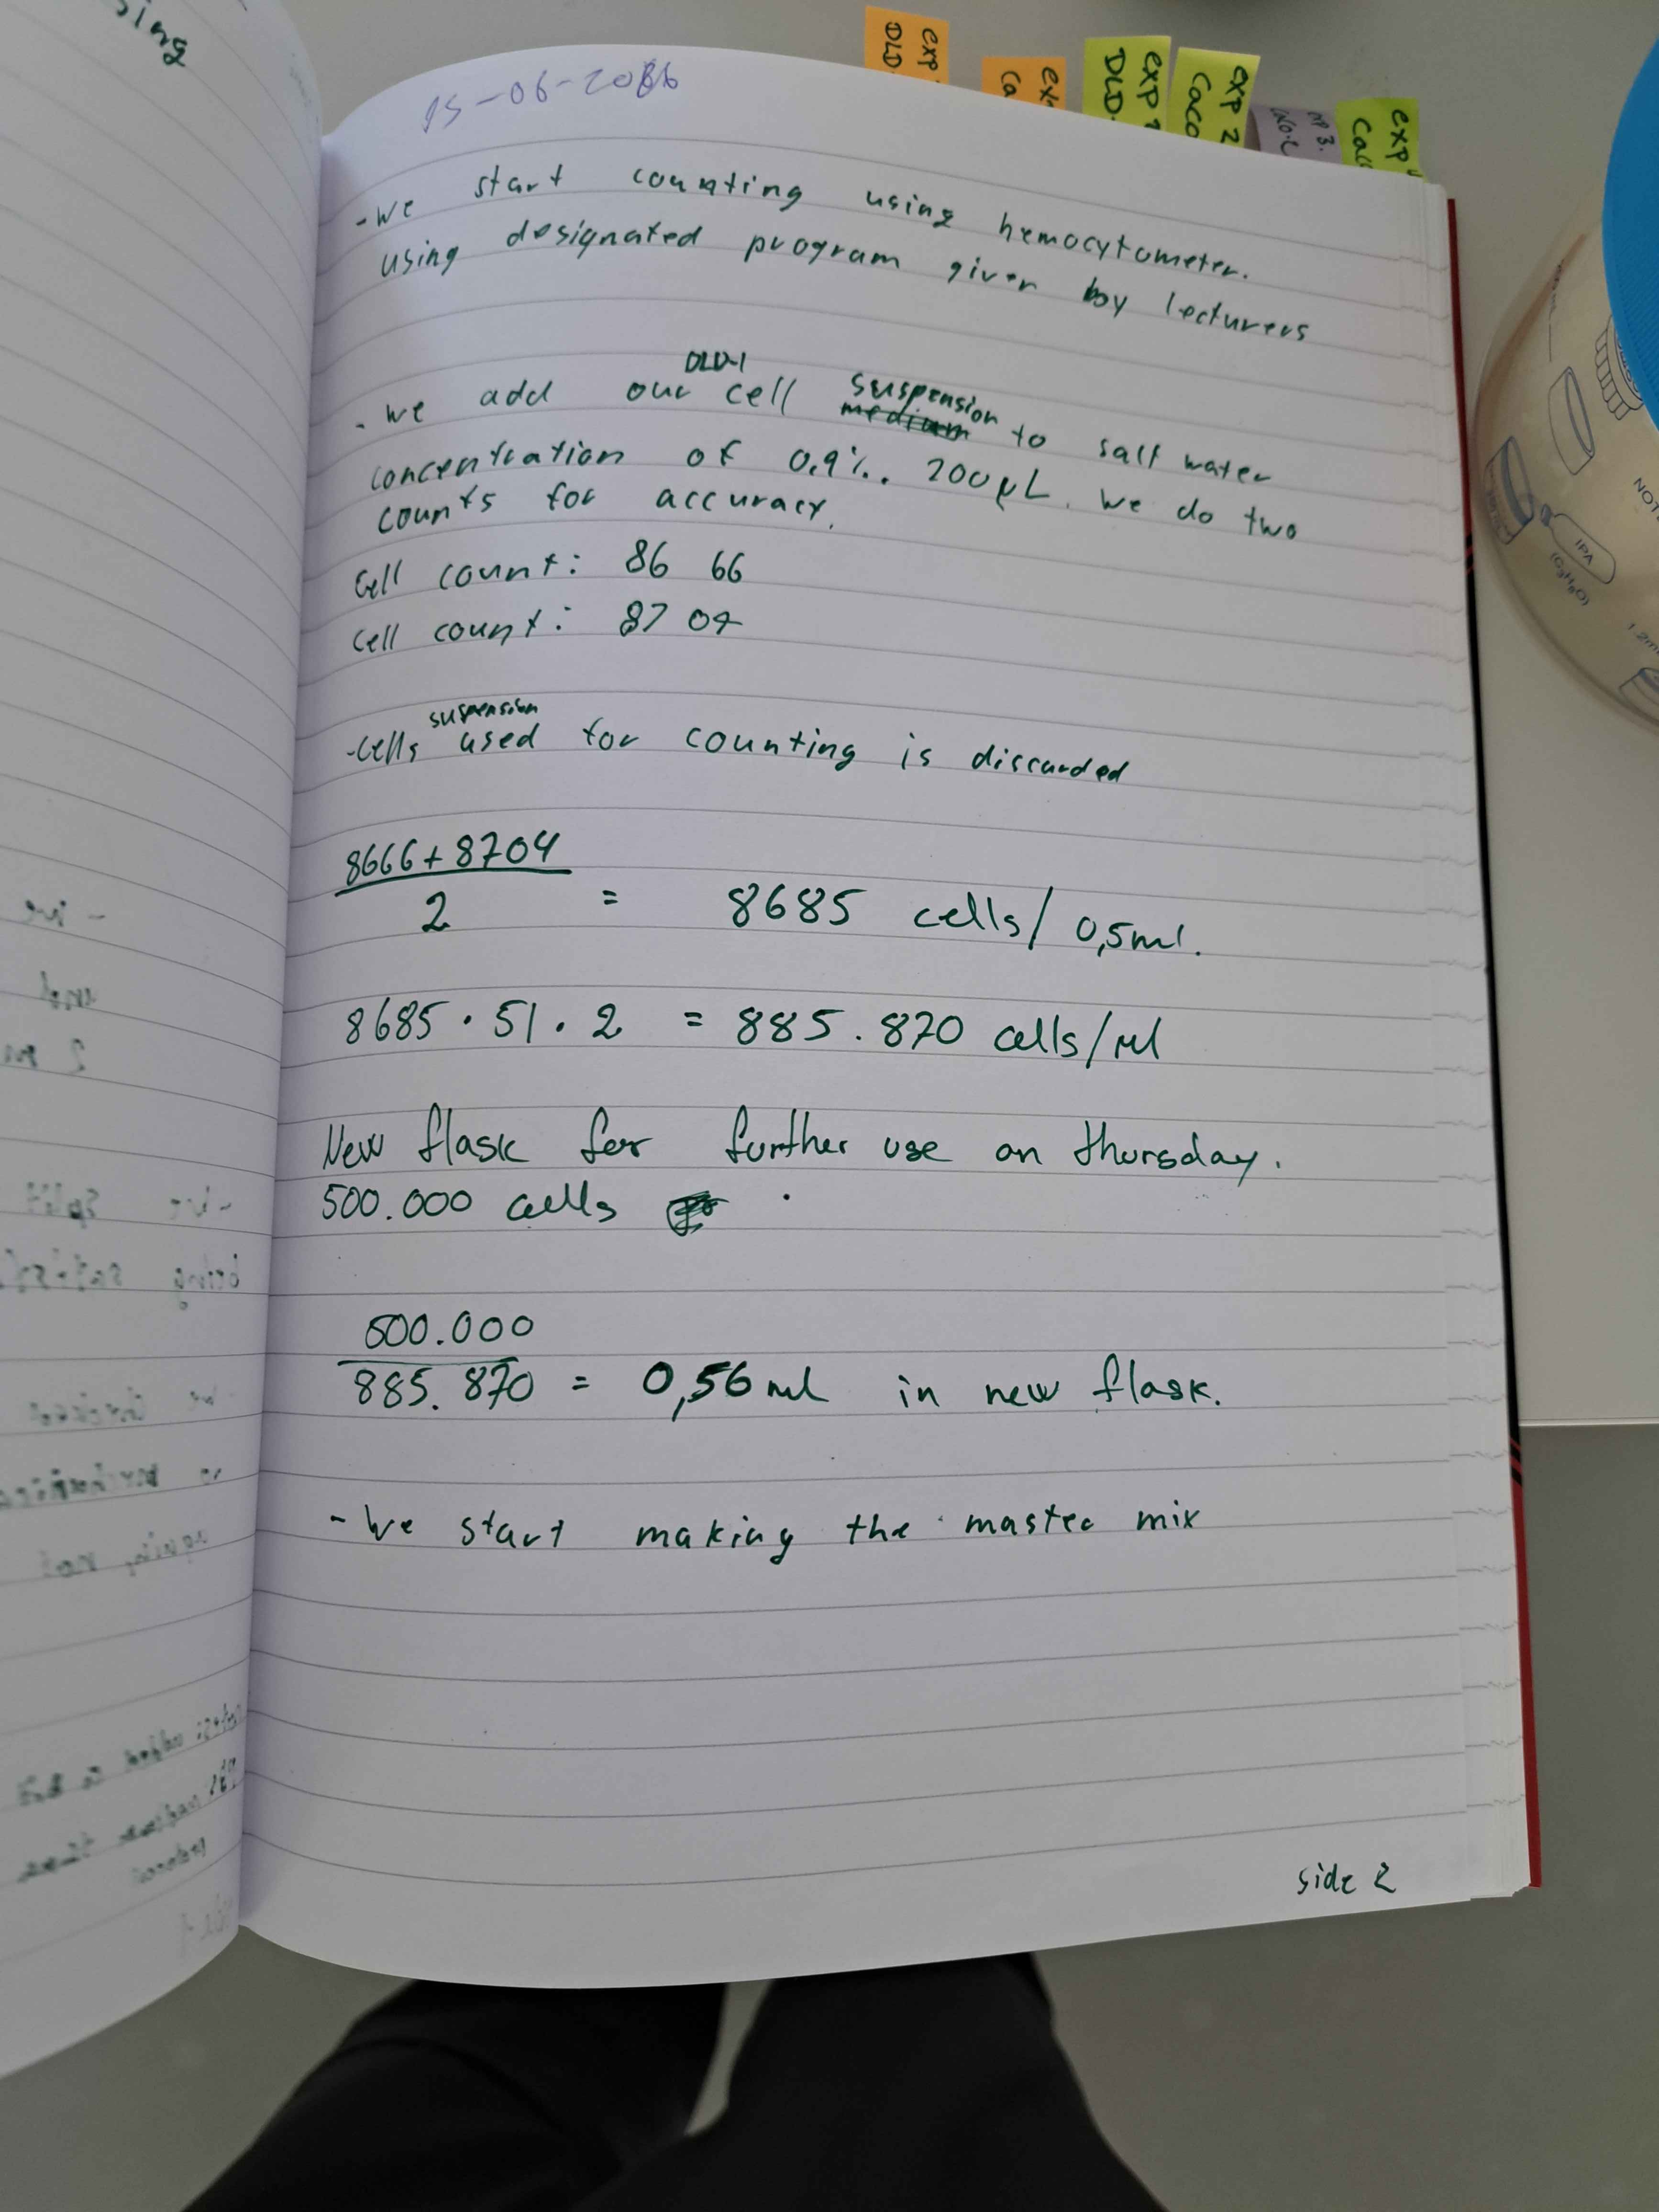 sing
exp
DLD
ex
Ca
exp
DLD
exp 2
Caco
exp
Cac
-we start counting using hemocytometer.
using designated program given by lecturers
DLD-1
- we add our cell suspension to salt water
medium
concentration of 0.9%. 200µL. We do two
counts for accuracy.
Cell count: 86 66
cell count: 87 04
suspension
-cells used for counting is discarded
8666+8704
2
= 8685 cells/ 0,5ml.
8685 · 51 · 2 = 885.870 cells/ml
New flask for further use on thursday.
500.000 cells
500.000
885.870
= 0,56 ml in new flask.
- We start making the master mix
side 2
IPA
(C3H8O)
NOT